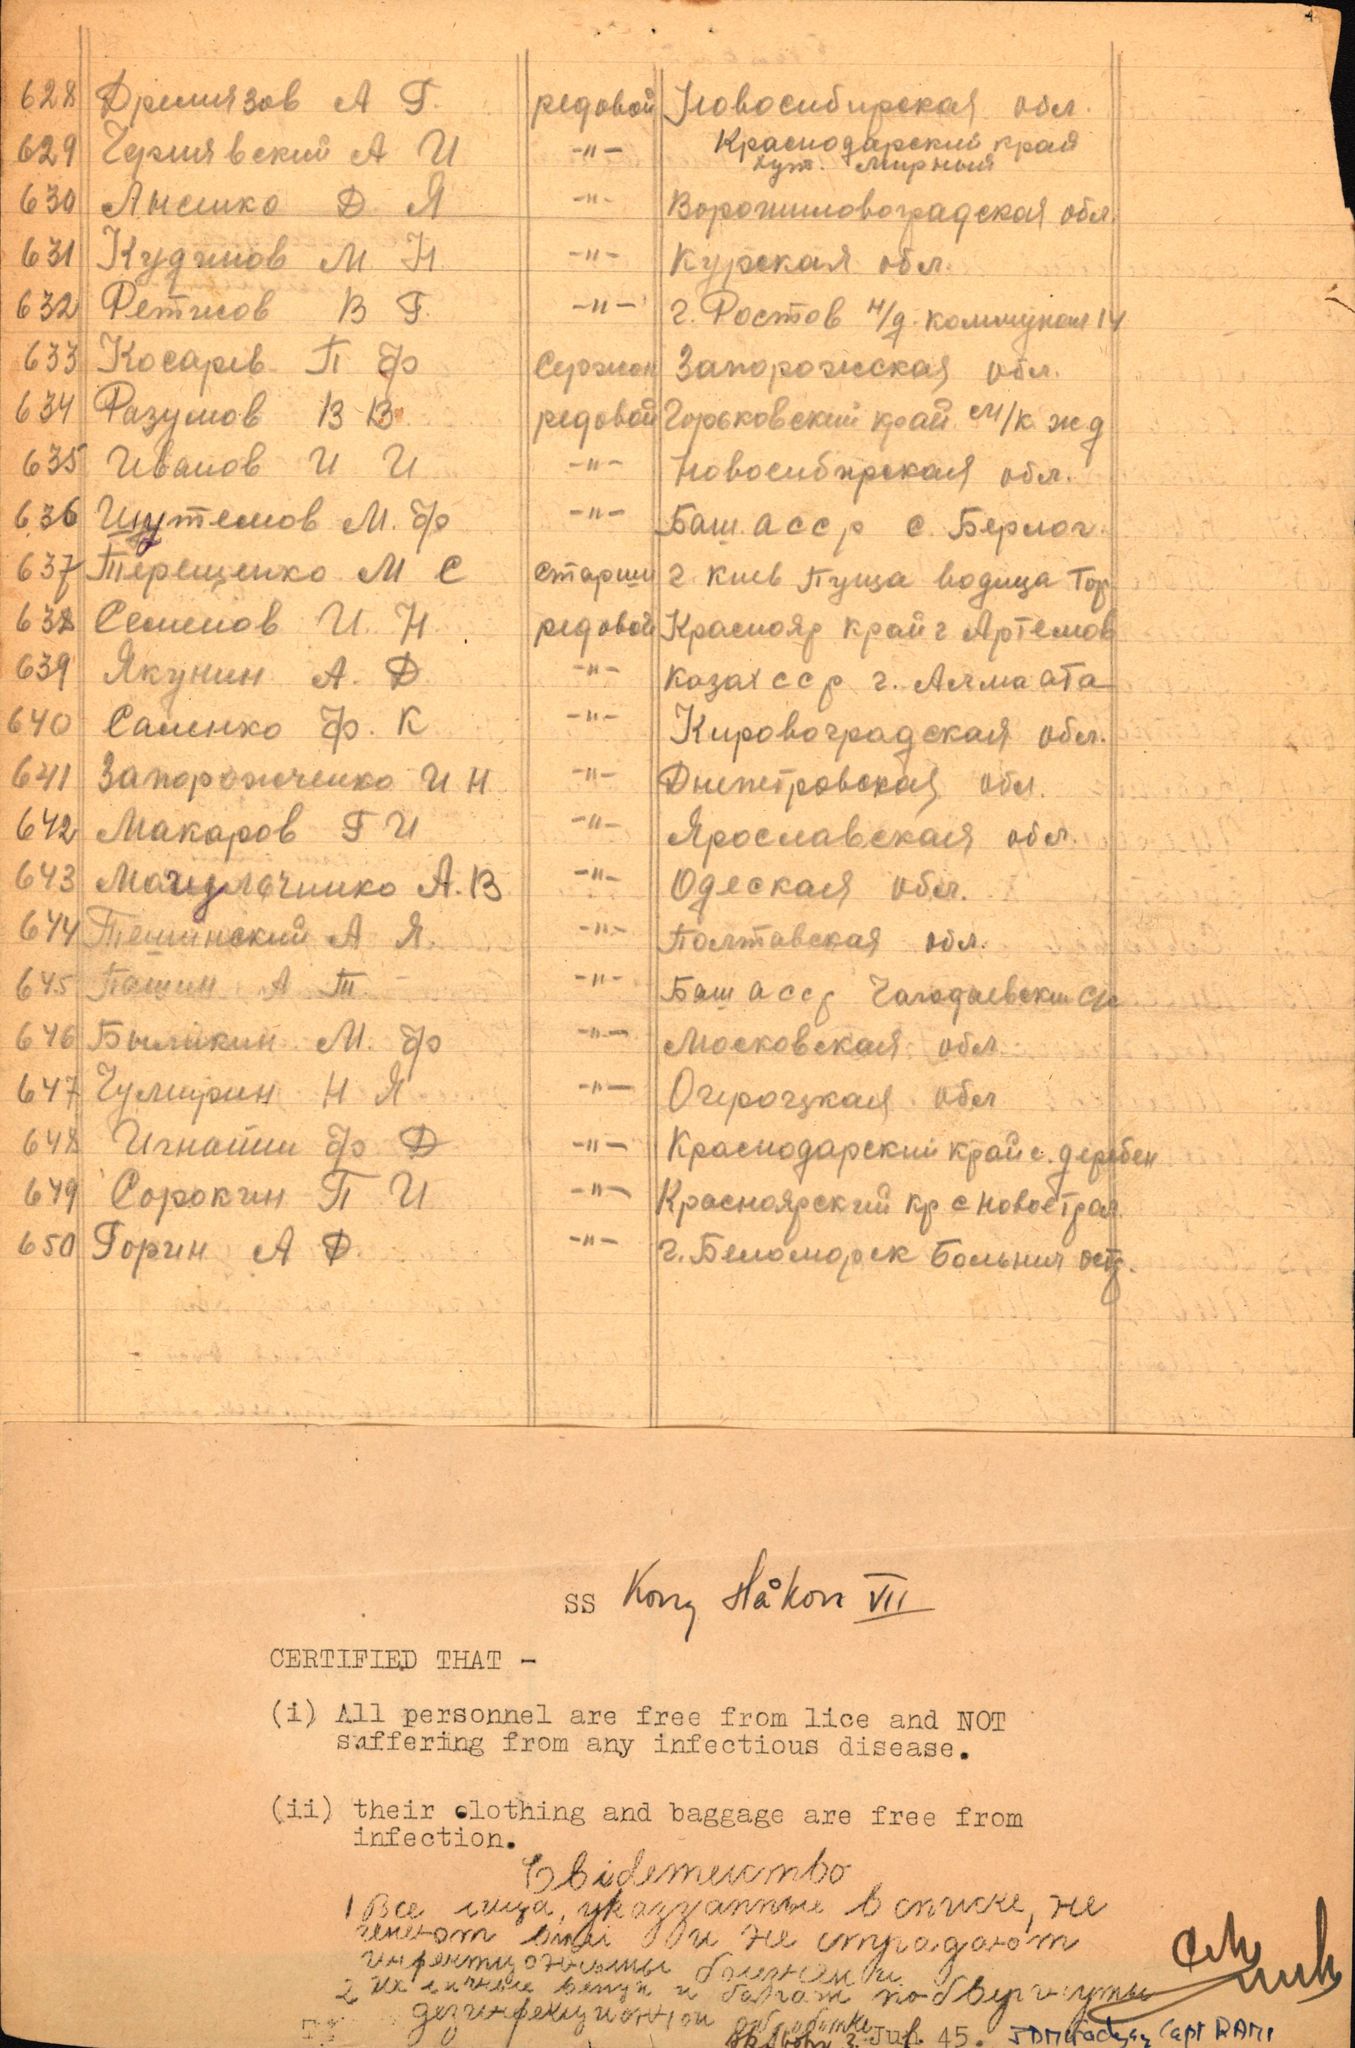 628 Дремизов А Г. редовой Новосибирская обл.
629 Чернявский А И -"- Краснодарский край
хут. Мирный
630 Лысенко Д Я -"- Ворошиловоградская обл.
631 Кудинов М Н. -"- Курская обл.
632 Фетисов В Г. -"- г. Ростов н/д. коммунаи 14
633 Косарев П Ф Сержон Запорожская обл.
634 Разумов В В редовой Горьковский край ст/к ж д
635 Иванов И И -"- Новосибирская обл.
636 Шутемов М. Ф -"- Баш асср с. Берлог.
637 Терещенко М С старши г. Киев Пуща водица Гор.
638 Семенов И. Н. редовой Краснояр край г Артемов
639 Якунин А. Д -"- Казах сср г. Алма ата
640 Саленко Ф. К -"- Кировоградская обл.
641 Запорожченко И Н -"- Днепетровская обл.
642 Макаров Г И -"- Ярославская обл.
643 А. В -"- Одеская обл.
644 А Я. -"- Полтавская обл.
645 Пашин А Т -"- Баш асср
646 М. Ф -"- Московская обл
647 Чумирин Н Я -"- обл
648 Игнатии Ф Д -"- Краснодарский край с. дербен
649 Сорокин П И -"- Красноярский кр с новостроя
650 Горин А Д. -"- г. Беломорск Больнич
SS Kong Håkon VII
CERTIFIED THAT -
(i) All personnel are free from lice and NOT
suffering from any infectious disease.
(ii) their clothing and baggage are free from
infection.
Свiдетелство
1 Все лица, указанные в списке, не
имеют вшей и не страдают
инфекционными болезнями
2 Их личные вещи и багаж подвергнуты
дезинфекционной обработке
Jul. 45. Capt RAMC